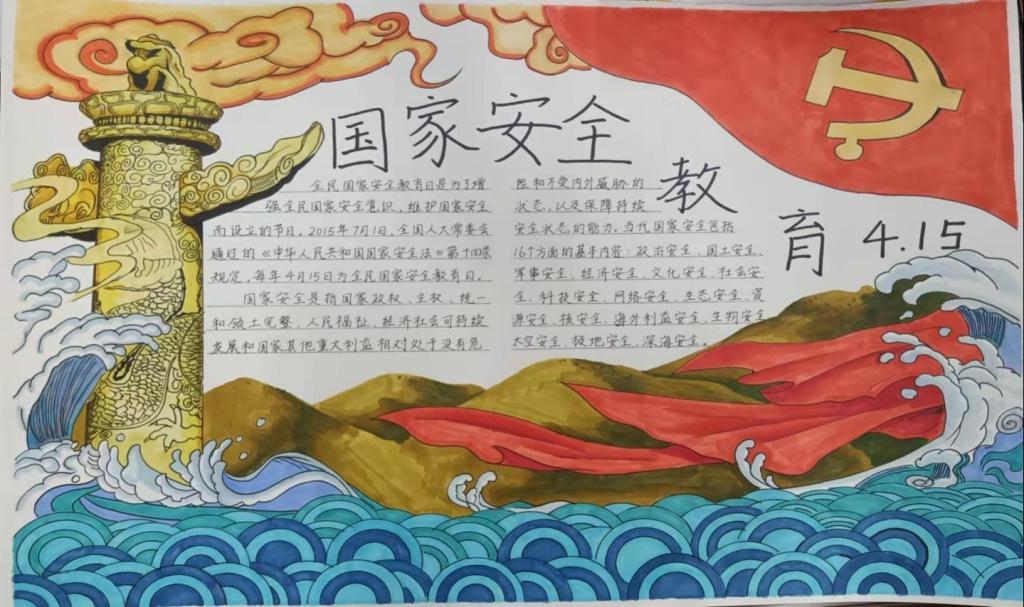 国家安全
教
育 4.15
全民国家安全教育日是为了增
强全民国家安全意识，维护国家安全
而设立的节日。2015年7月1日，全国人大常委会
通过的《中华人民共和国国家安全法》第十四条
规定，每年4月15日为全民国家安全教育日。
国家安全是指国家政权、主权、统一
和领土完整、人民福祉、经济社会可持续
发展和国家其他重大利益相对处于没有危
险和不受内外威胁的
状态，以及保障持续
安全状态的能力。当代国家安全包括
16个方面的基本内容：政治安全、国土安全、
军事安全、经济安全、文化安全、社会安
全、科技安全、网络安全、生态安全、资
源安全、核安全、海外利益安全、生物安全
太空安全、极地安全、深海安全。